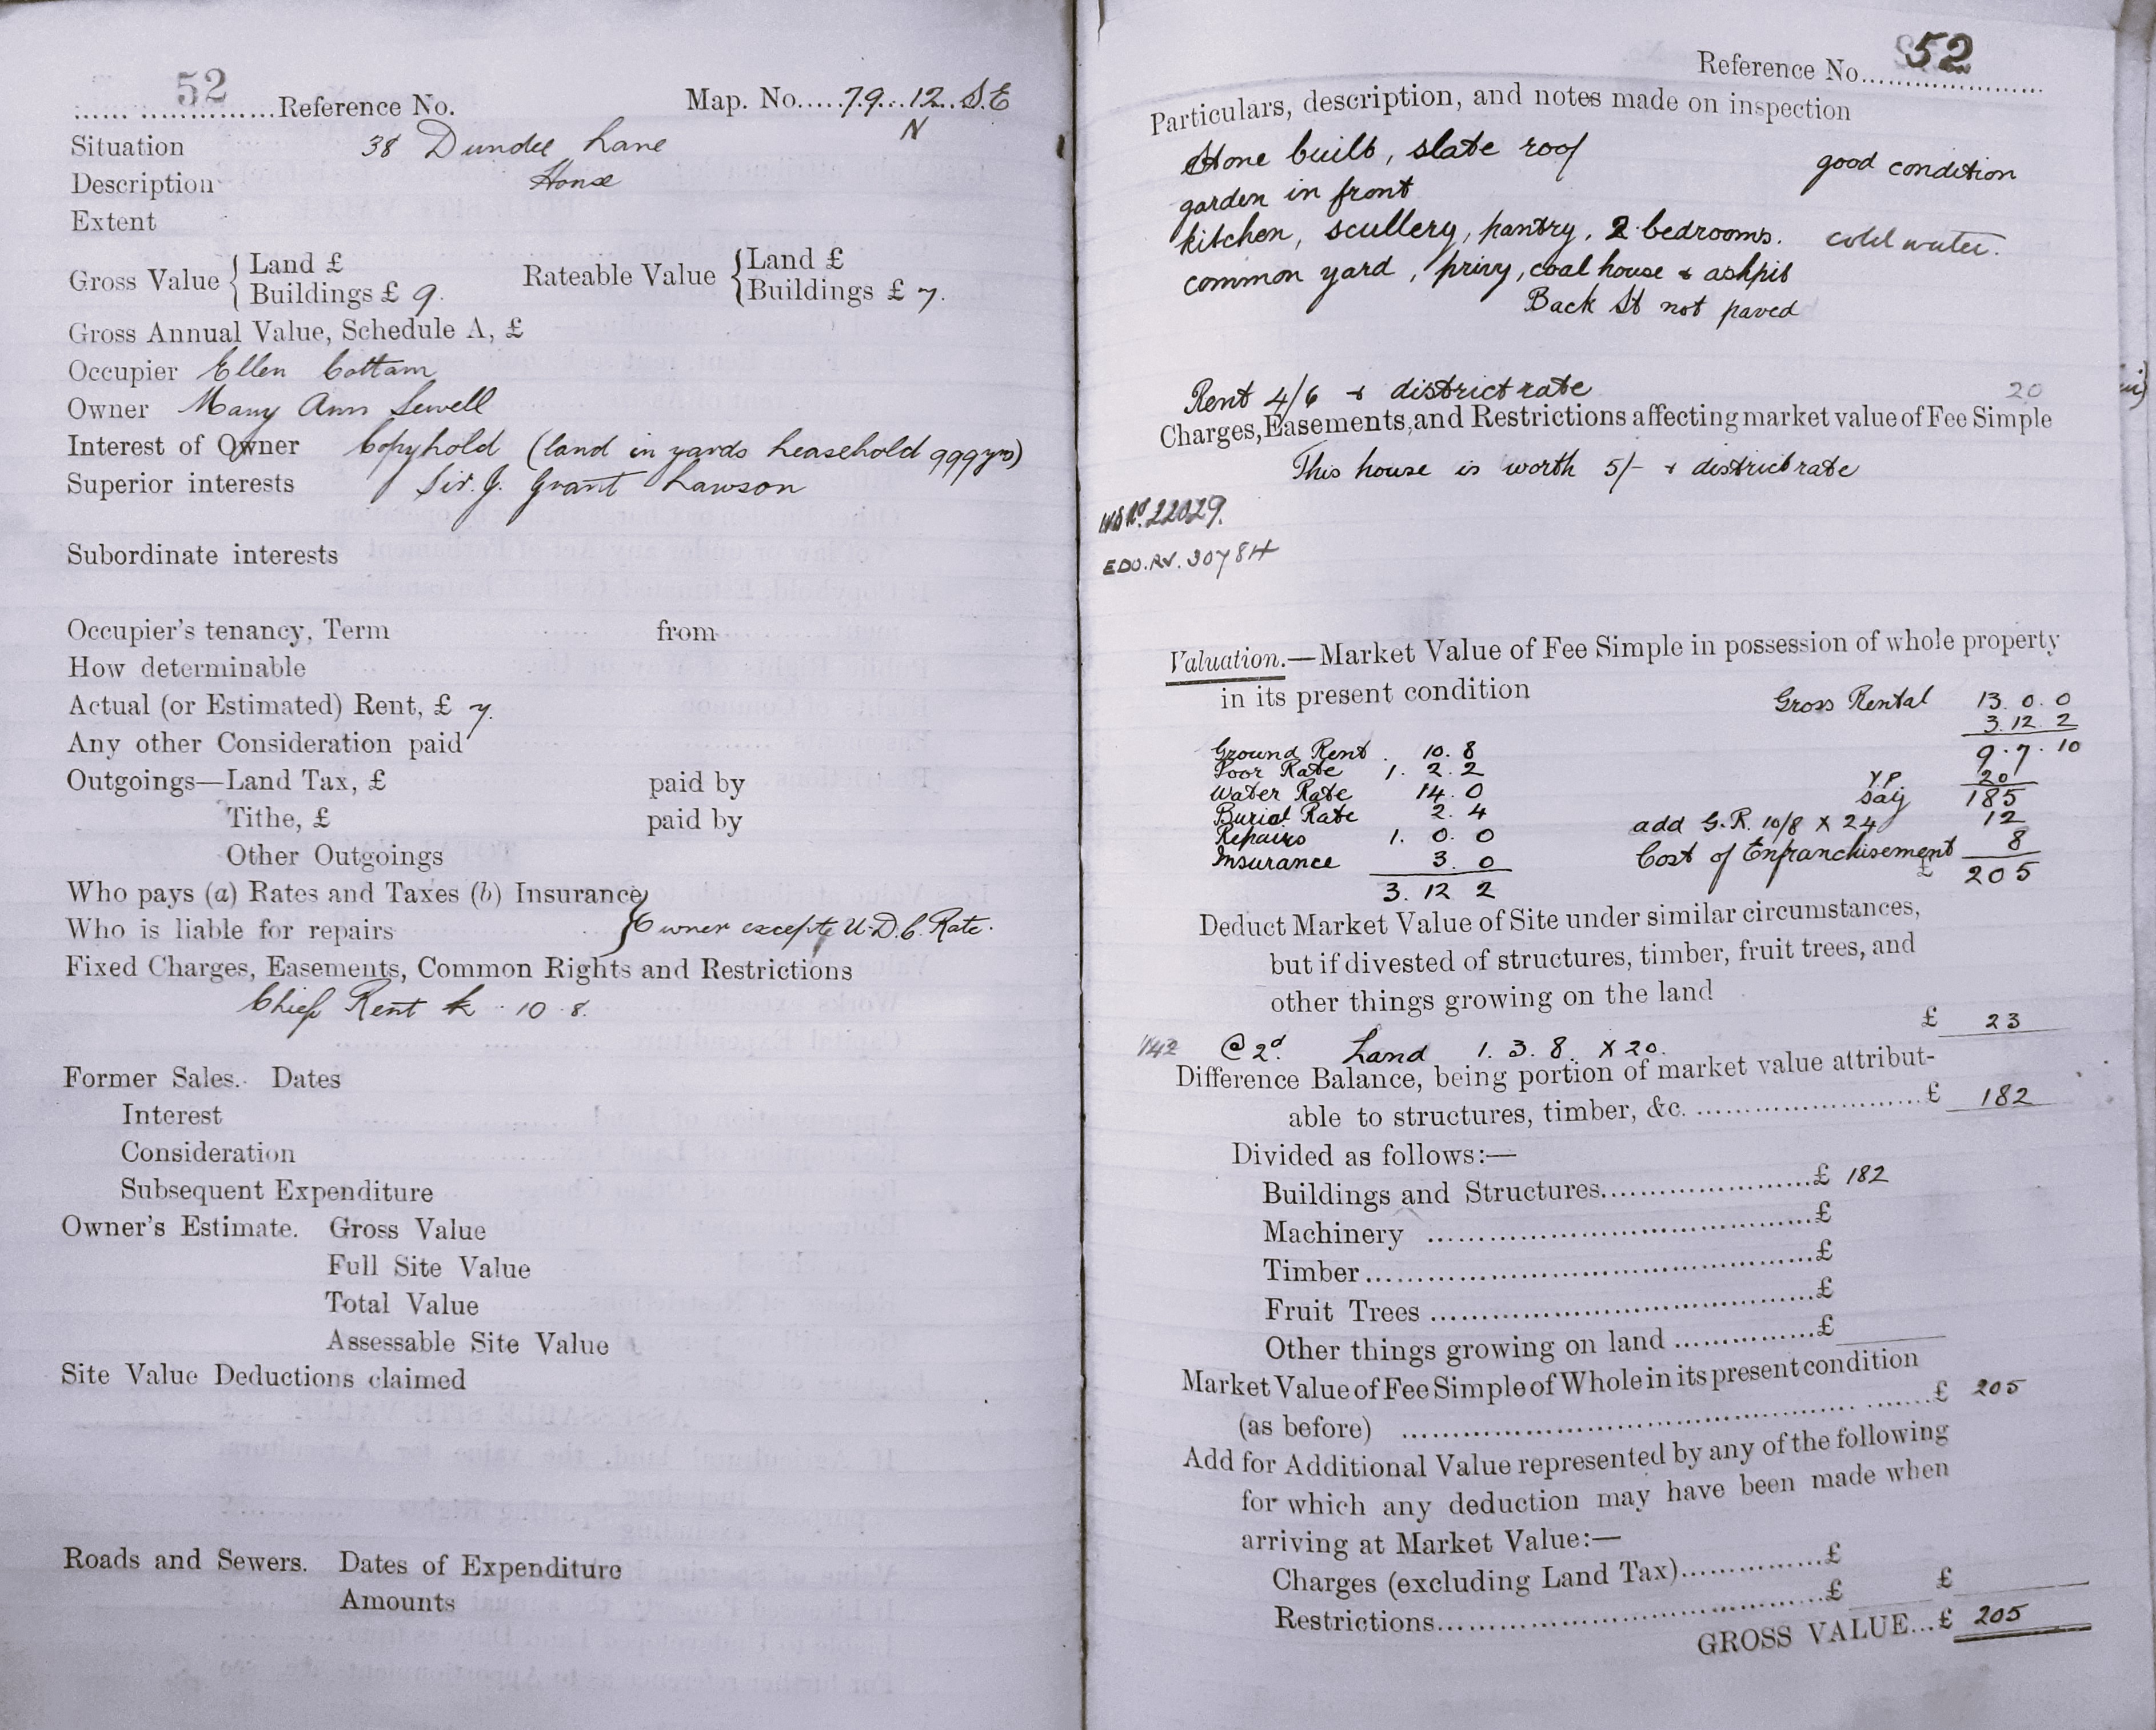 52
Reference No. Map. No. 79 12 S.E
N
Situation 38 Dundee Lane
Description House
Extent
Gross Value { Land £ Rateable Value { Land £
Buildings £ 9. Buildings £ 7.
Gross Annual Value, Schedule A, £
Occupier Ellen Cottam
Owner Mary Ann Sewell
Interest of Owner Copyhold (land in yards leasehold 999 yrs)
Superior interests Sir. J. Grant Lawson
Subordinate interests
Occupier's tenancy, Term from
How determinable
Actual (or Estimated) Rent, £ 7.
Any other Consideration paid
Outgoings—Land Tax, £ paid by
Tithe, £ paid by
Other Outgoings
Who pays (a) Rates and Taxes (b) Insurance
Who is liable for repairs } Owner except U.D.C. Rate.
Fixed Charges, Easements, Common Rights and Restrictions
Chief Rent 10 . 8.
Former Sales. Dates
Interest
Consideration
Subsequent Expenditure
Owner's Estimate. Gross Value
Full Site Value
Total Value
Assessable Site Value
Site Value Deductions claimed
Roads and Sewers. Dates of Expenditure
Amounts
Reference No. 52
Particulars, description, and notes made on inspection
Stone built, slate roof good condition
garden in front
kitchen, scullery, pantry, 2 bedrooms. cold water.
common yard, privy, coal house & ashpit
Back St not paved
Rent 4/6 + district rate 20
Charges, Easements, and Restrictions affecting market value of Fee Simple
This house is worth 5/- + district rate
22029.
EDO. RV. 30784
Valuation.—Market Value of Fee Simple in possession of whole property
in its present condition Gross Rental 13. 0. 0
3. 12. 2
Ground Rent . 10. 8 9. 7. 10
Poor Rate 1. 2. 2 YP 20
Water Rate 14. 0 say 185
Burial Rate 2. 4 add G.R. 10/8 X 24 12
Repairs 1. 0. 0 Cost of Enfranchisement 8
Insurance 3. 0 £ 205
3. 12 2
Deduct Market Value of Site under similar circumstances,
but if divested of structures, timber, fruit trees, and
other things growing on the land
£ 23
142 @ 2d. Land 1. 3. 8. X 20.
Difference Balance, being portion of market value attribut-
able to structures, timber, &c. £ 182
Divided as follows:—
Buildings and Structures £ 182
Machinery £
Timber £
Fruit Trees £
Other things growing on land £
Market Value of Fee Simple of Whole in its present condition
(as before) £ 205
Add for Additional Value represented by any of the following
for which any deduction may have been made when
arriving at Market Value:—
Charges (excluding Land Tax) £
Restrictions £ £
GROSS VALUE...£ 205